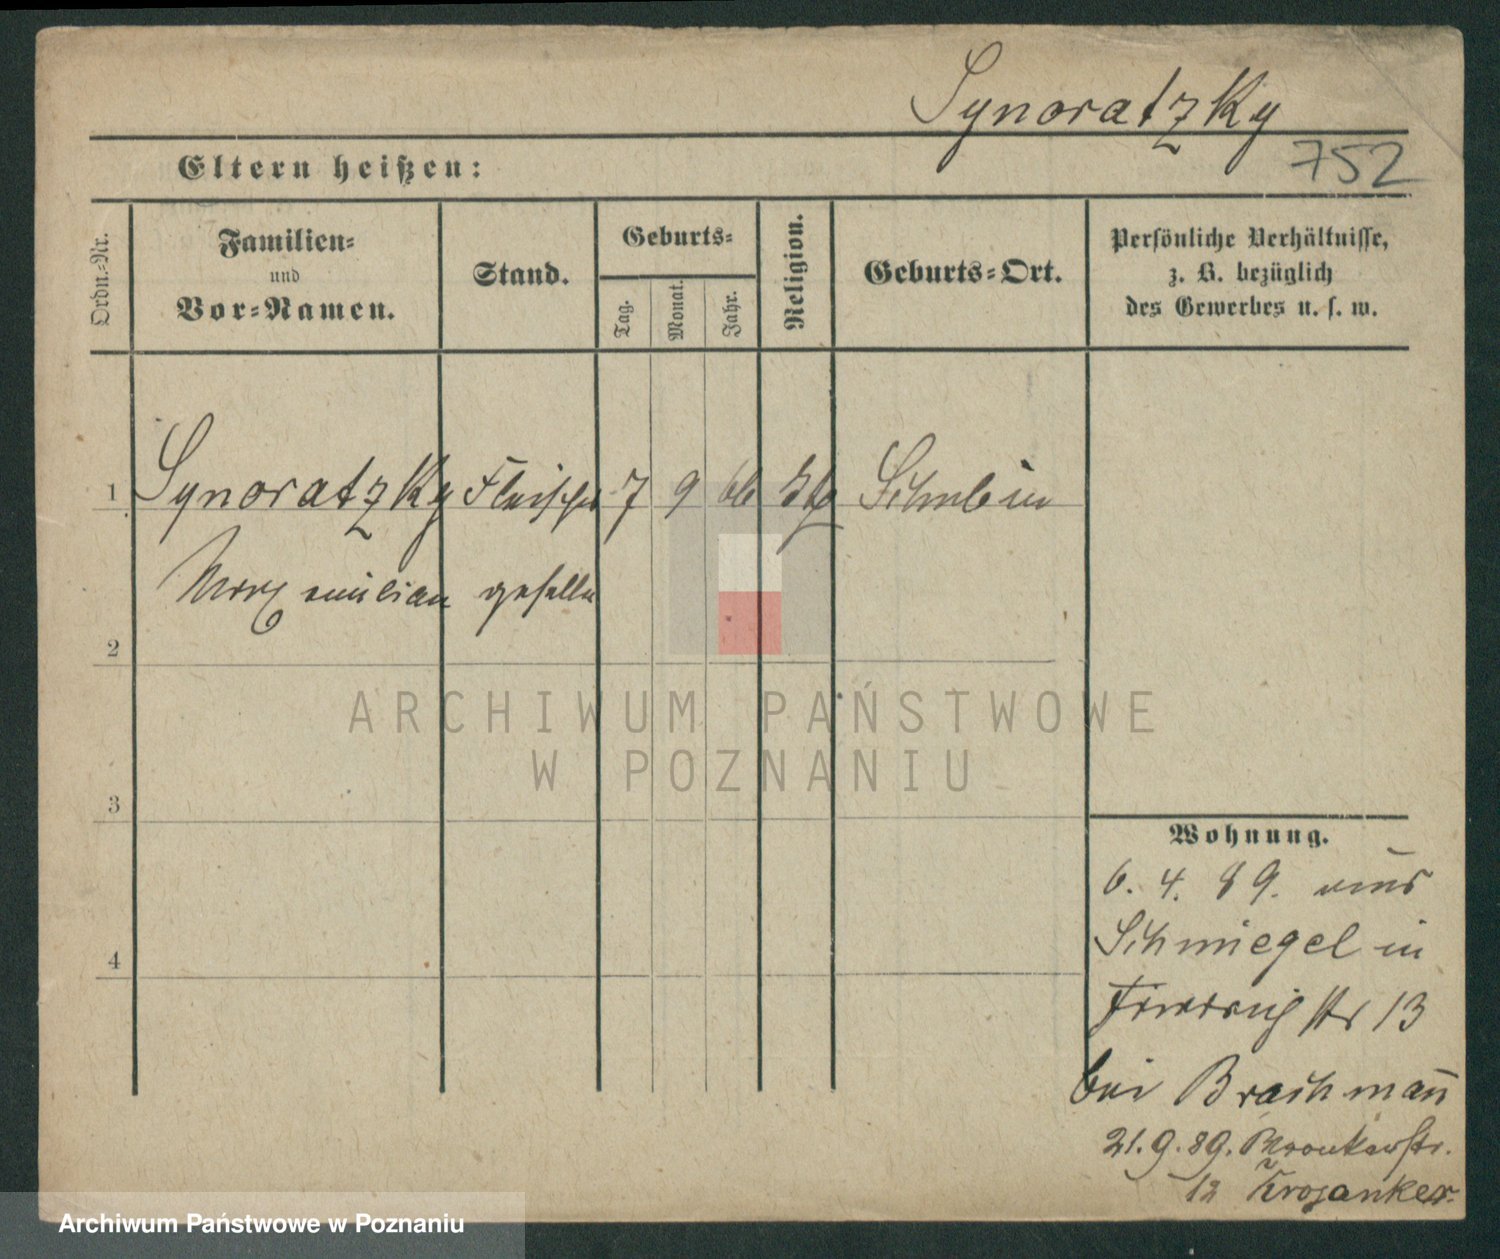 Synoratzky
752
Eltern heißen:
Ordn.-Nr.
Familien-
und
Vor-Namen.
Stand.
Geburts-
Tag.
Monat.
Jahr.
Religion.
Geburts-Ort.
Persönliche Verhältnisse,
z. B. bezüglich
des Gewerbes u. s. w.
1 Synoratzky Fleischer 7 9 66 Schubin
Maxemilian geselle
2
3
4
ARCHIWUM PAŃSTWOWE
W POZNANIU
Wohnung.
6. 4. 89. aus
Schmiegel in
str 13
bei Brachmann
21. 9. 89. Wronkerstr.
12 Krojanker
Archiwum Państwowe w Poznaniu